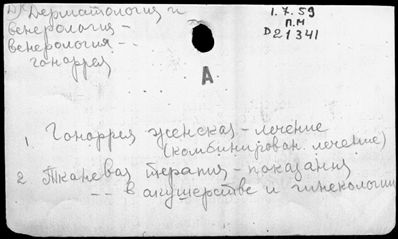 Дерматология и
венерология -
венерология - -
гонаррея
1.7.59
п.м
D21341
А
1. Гонаррея женская - лечение
(комбинирован. лечение)
2 Тканевая терапия - показания
- - в акушерстве и гинекологии